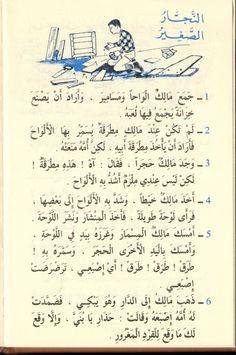 النَّجَّارُ
الصَّغِيرُ
1 ـ جَمَعَ مَالِكٌ أَلْوَاحاً وَمَسَامِيرَ ، وَأَرَادَ أَنْ يَصْنَعَ
خِزَانَةً يَجْمَعُ فِيهَا لُعَبَهُ .
2 ـ لَمْ تَكُنْ عِنْدَ مَالِكٍ مِطْرَقَةٌ يُسَمِّرُ بِهَا الْأَلْوَاحَ
فَأَرَادَ أَنْ يَأْخُذَ مِطْرَقَةَ أَبِيهِ ، لَكِنَّ أُمَّهُ مَنَعَتْهُ .
3 ـ وَجَدَ مَالِكٌ حَجَراً ، فَقَالَ : آهْ ! هَذِهِ مِطْرَقَةٌ !
لَكِنْ لَيْسَ عِنْدِي مِلْزَمٌ أَشُدُّ بِهِ الْأَلْوَاحَ .
4 ـ أَخَذَ مَالِكٌ خَيْطاً ، وَشَدَّ بِهِ الْأَلْوَاحَ إِلَى بَعْضِهَا ،
فَرَأَى لَوْحَةً طَوِيلَةً ، فَأَخَذَ الْمِنْشَارَ وَنَشَرَ اللَّوْحَةَ .
5 ـ أَمْسَكَ مَالِكٌ الْمِسْمَارَ وَغَرَزَهُ بِيَدٍ فِي اللَّوْحَةِ ،
وَأَمْسَكَ بِالْيَدِ الْأُخْرَى الْحَجَرَ ، وَسَمَّرَهُ بِهِ !
طَرَقْ ! طَرَقْ ! طَرَقْ ! أَيْ إِصْبَعِي ، تَرَضْرَضَتْ
إِصْبَعِي .
6 ـ ذَهَبَ مَالِكٌ إِلَى الدَّارِ وَهُوَ يَبْكِي ، فَضَمَّدَتْ
لَهُ أُمُّهُ إِصْبَعَهُ وَقَالَتْ : حَذَارِ يَا بُنَيَّ ، وَإِلَّا وَقَعَ
لَكَ مَا وَقَعَ لِلْقِرْدِ الْمَغْرُورِ .